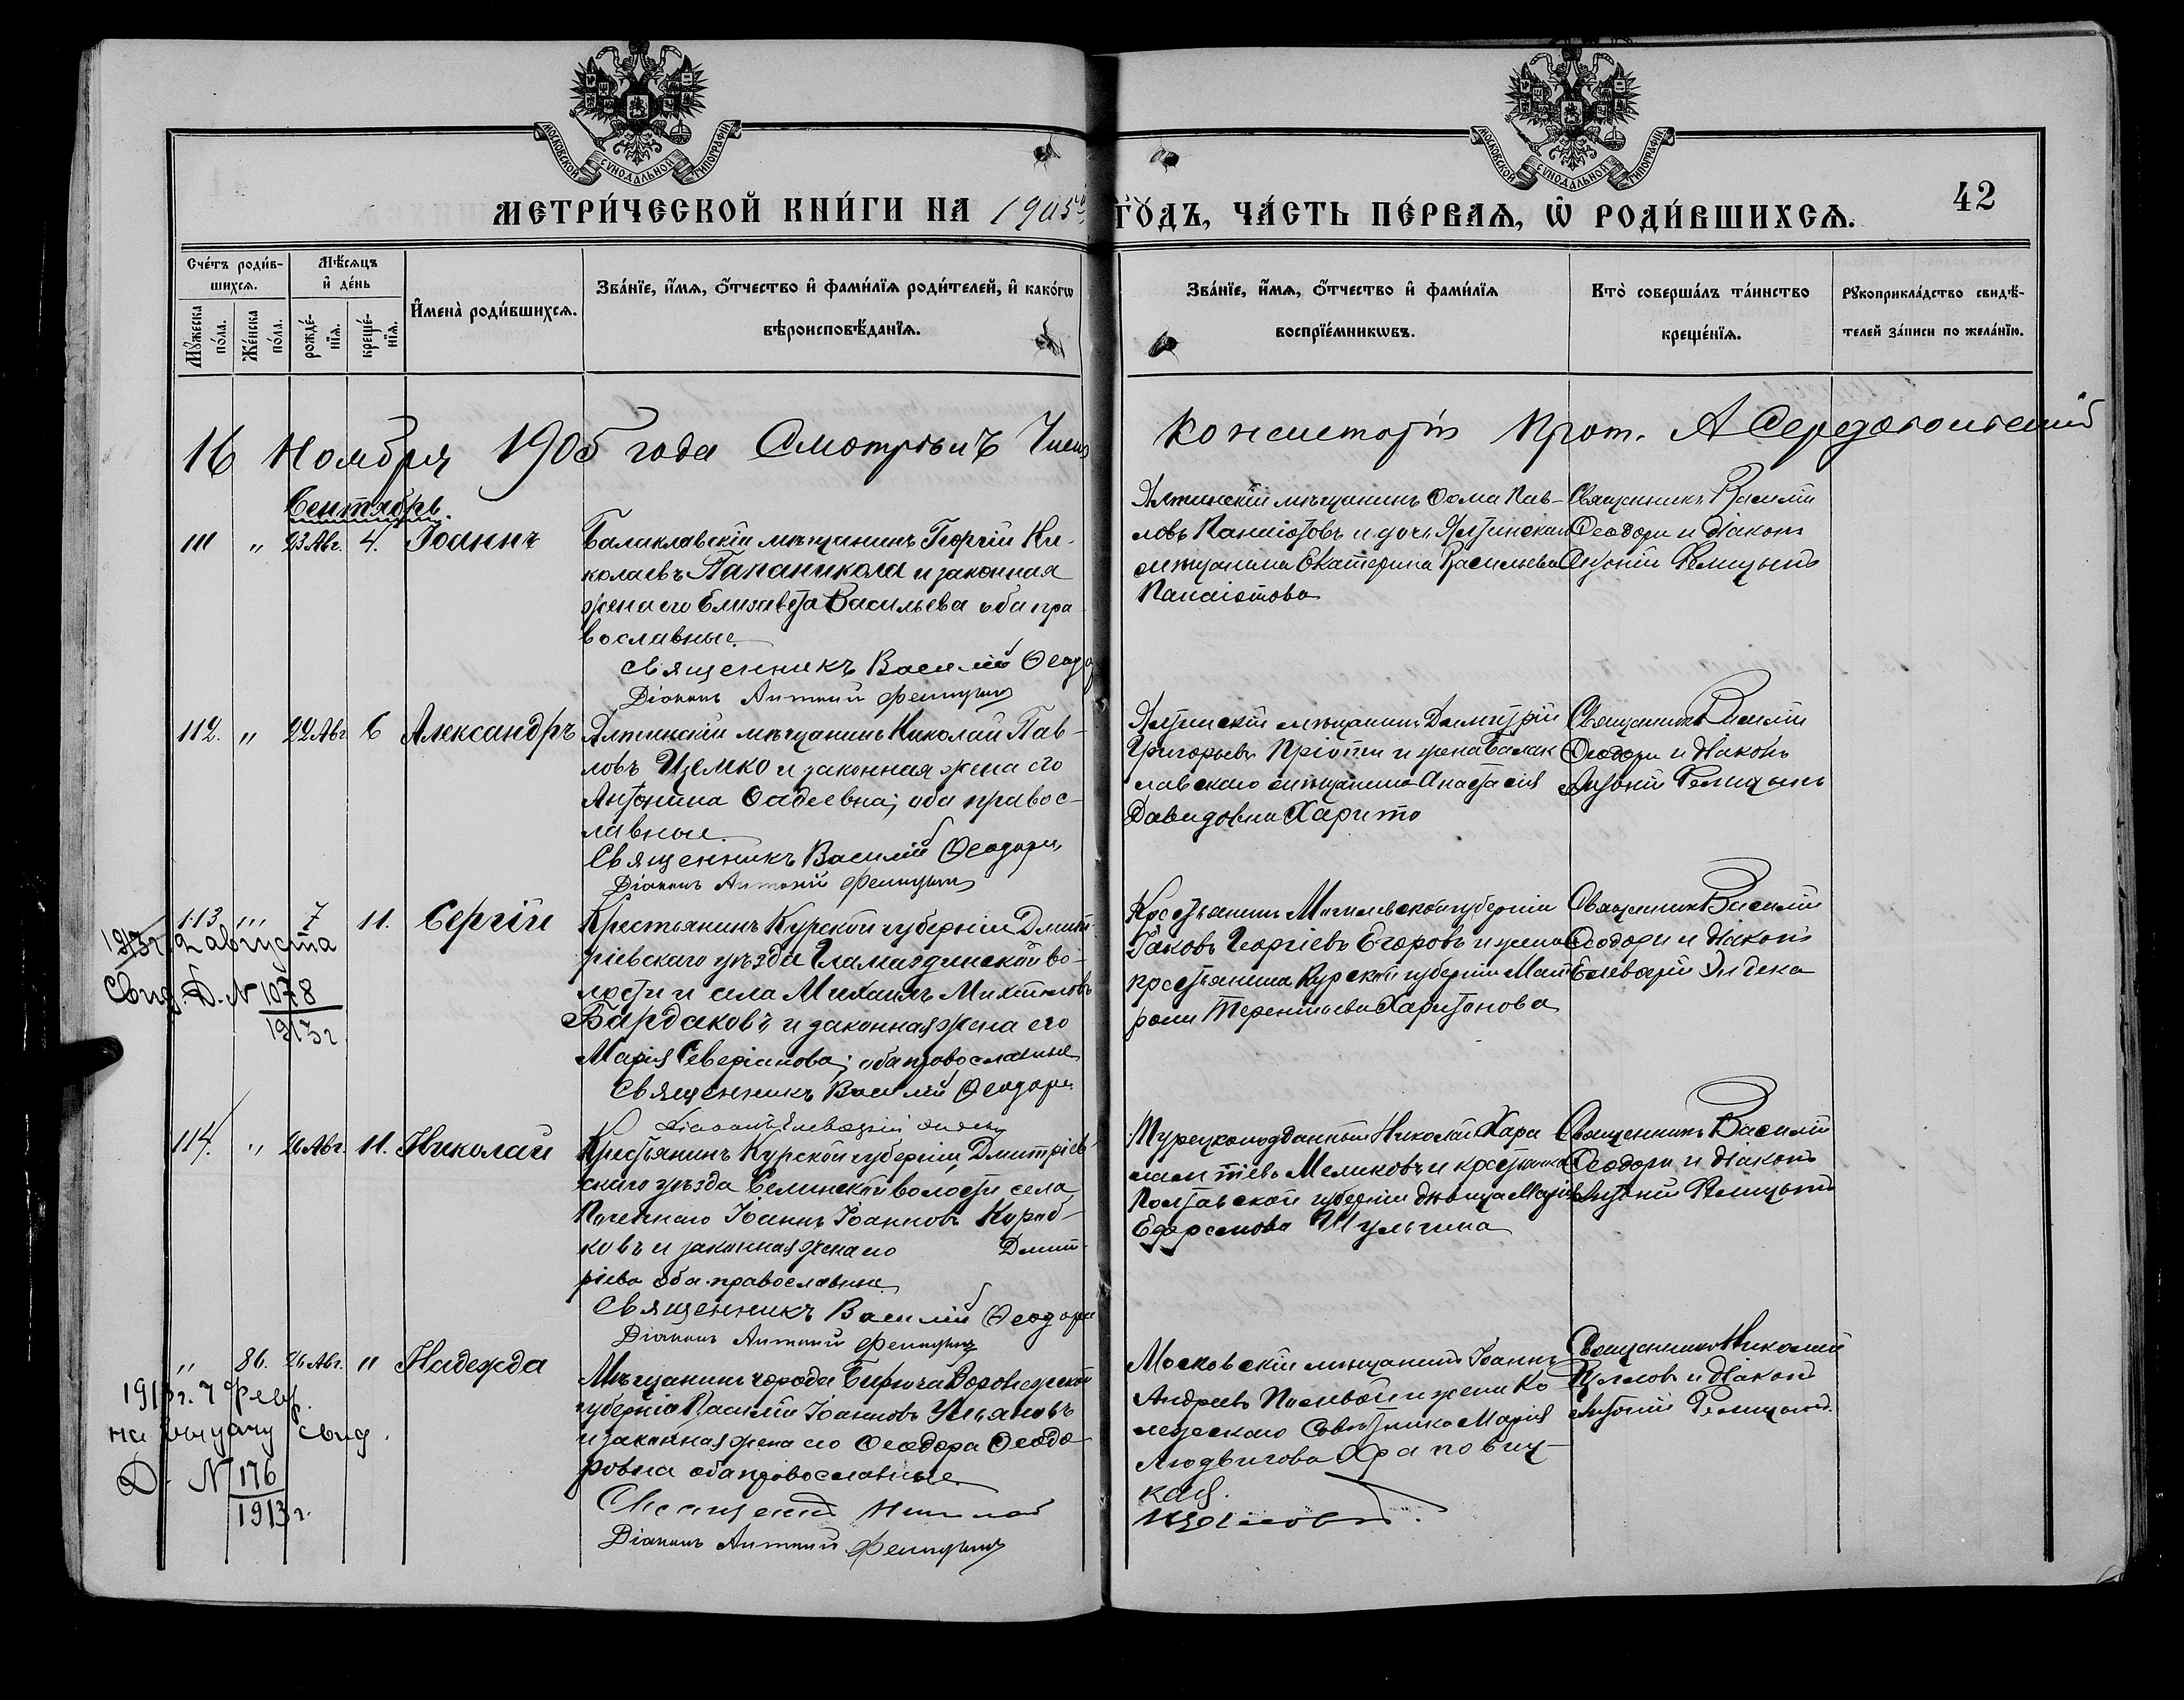 МОСКОВСКОЙ СѴНОДАЛЬНОЙ ТИПОГРАФІИ
МОСКОВСКОЙ СѴНОДАЛЬНОЙ ТИПОГРАФІИ
МЕТРИ́ЧЕСКОЙ КНИ́ГИ НА 1905й ГО́ДЪ, ЧА́СТЬ ПЕ́РВАѦ, Ѡ҆ РОДИ́ВШИХСѦ.
42
Сче́тъ роди́в-
шихсѧ.
Мꙋ́жеска по́ла.
Же́нска по́ла.
Мѣ́сѧцъ
и҆ де́нь
рожде́-
нїѧ.
креще́-
нїѧ.
И҆мена̀ роди́вшихсѧ.
Зва́нїе, и҆́мѧ, ѻ҆́тчество и҆ фами́лїѧ роди́телей, и҆ како́гѡ
вѣроисповѣ́данїѧ.
Зва́нїе, и҆́мѧ, ѻ҆́тчество и҆ фами́лїѧ
воспрїе́мникѡвъ.
Кто̀ соверша́лъ та́инство
креще́нїѧ.
Рꙋкоприкла́дство свидѣ́-
телей за́писи по жела́нїю.
16 Ноября 1905 года Смотрѣлъ Членъ Консисторіи Прот. А Сердобольскій
Сентябрь.
111 " 23 Авг. 4. Іоаннъ
Балаклавскій мѣщанинъ Георгій Ни-
колаевъ Папаникола и законная
жена его Елизавета Васильева оба пра
вославные
Священникъ Василій Ѳеодори
Діаконъ Антоній
Ялтинскій мѣщанинъ Ѳома Пав-
ловъ Панаіотовъ и дочь Ялтинскаго
мѣщанина Екатерина Васильева
Панаіотова
Священникъ Василій
Ѳеодори и діаконъ
Антоній
112. " 22 Авг 6 Александръ
Ялтинскій мѣщанинъ Николай Пав-
ловъ Цемко и законная жена его
Антонина Ѳадеевна; оба правос-
лавные
Священникъ Василій Ѳеодори
Діаконъ Антоній
Ялтинскій мѣщанинъ Димитрій
Григорьевъ и жена Балак
лавскаго мѣщанина Анастасія
Давидовна Харито
Священникъ Василій
Ѳеодори и діаконъ
Антоній
113 " 7 11. Сергій
1913 г. 2 августа
Свид. Д. № 1078
1913 г.
Крестьянинъ Курской губерніи Дмит-
ріевскаго уѣзда во-
лости и села Михаилъ Михаиловъ
Бардаковъ и законная жена его
Марія Северіанова; оба православные
Священникъ Василій Ѳеодори
Діаконъ Елевѳерій
Крестьянинъ Могилевской губерніи
Іаковъ Георгіевъ Егоровъ и жена
крестьянина Курской губерніи Мат
рона Терентьева Харитонова
Священникъ Василій
Ѳеодори и діаконъ
Елевѳерій
114. " 26 Авг. 11. Николай
Крестьянинъ Курской губерніи Дмитріев
скаго уѣзда Селинской волости села
Іоаннъ Іоанновъ
ковъ и законная жена его Дмит-
ріева оба православные
Священникъ Василій Ѳеодори
Діаконъ Антоній
Турецкоподданный Николай Хара
лампіевъ Меликовъ и крестьянка
Полтавской губерніи дѣвица Марія
Шульгина
Священникъ Василій
Ѳеодори и діаконъ
Антоній
" 86. 26 Авг. " Надежда
1913 г. 7 февр.
на выдачу свид.
Д. № 176
1913 г.
Мѣщанинъ города Бирюча Воронежской
губерніи Василій Іоанновъ Ульяновъ
и законная жена его Ѳеодора Ѳеодо-
ровна оба православные
Священникъ Николай
Діаконъ Антоній
Московскій мѣщанинъ Іоаннъ
Андреевъ и жена Ко
лежскаго Совѣтника Марія
Людвигова Храповиц-
кая.
Священникъ Николай
и діаконъ
Антоній